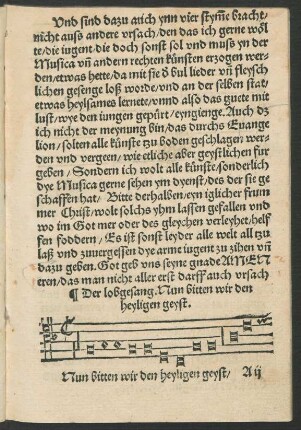 Und sind dazu auch ynn vier stym̃e bracht/
nicht auß andere vrsach/den das ich gerne wöl
te/die iugent die doch sonst sol vnd muß yn der
Musica vñ andern rechten künsten erzogen wer-
den/etwas hette/da mit sie ð bul lieder vñ fleysch
lichen gesenge loß worde/vnd an der selben stat/
etwas heylsames lernete/vnnd also das guete mit
lust/wye den iungen gepürt/eyngienge. Auch dz
ich nicht der meynung bin/das durchs Euange
lion/solten alle künste zu boden geschlagen wer-
den vnd vergeen/wie etliche aber geystlichen fur
geben/Sondern ich wolt alle künste/sonderlich
dye Musica gerne sehen ym dyenst/des der sie ge
schaffen hat/ Bitte derhalben/eyn iglicher frum
mer Christ/wolt solchs yhm lassen gefallen vnd
wo im Got mer oder des gleychen verleyhet/helf
fen foddern/Es ist sonst leyder alle welt all tzu
laß vnd zuuergessen dye arme iugent zu zihen vñ
dazu geben. Got geb vns seyne gnade AMEN
eren/das man nicht aller erst darff auch vrsach
¶ Der lobgesang. Nun bitten wir den
heyligen geyst.
Nun bitten wir den heyligen geyst/ A ij